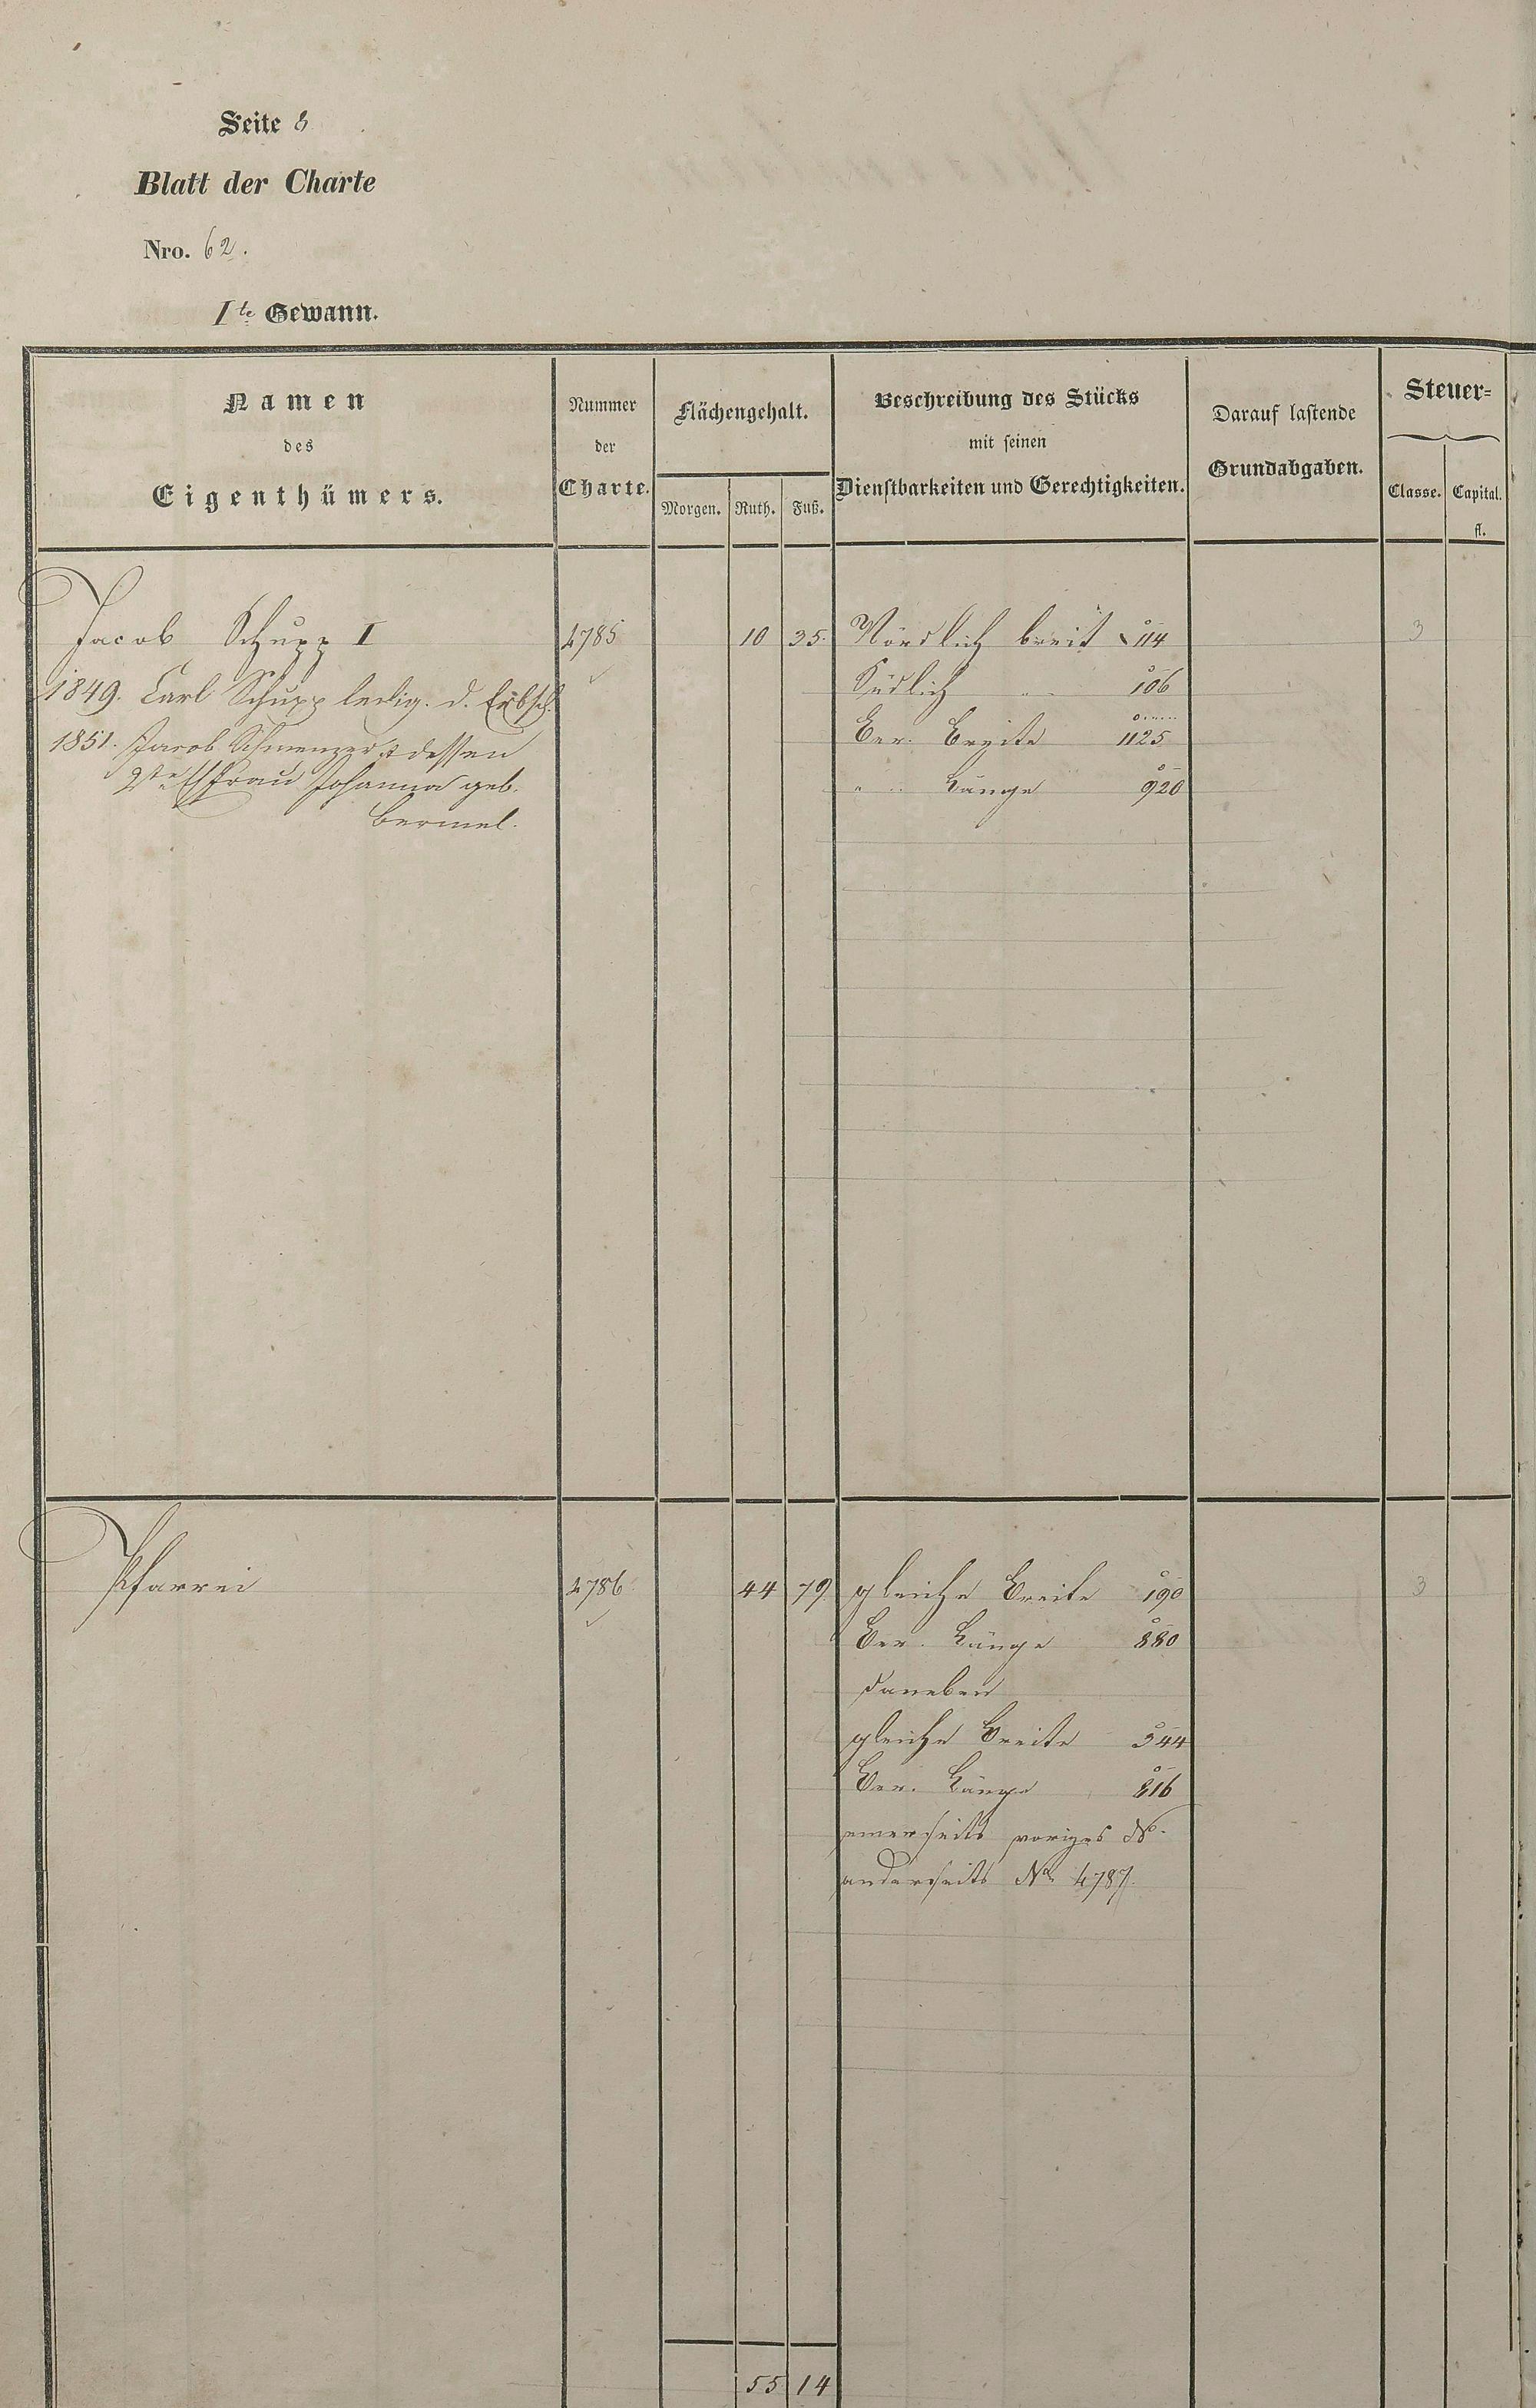 Seite 8
Blatt der Charte
Nro. 62.
Ite Gewann.
Namen
des
Eigenthümers.
Nummer
der
Charte.
Flächengehalt.
Morgen. Ruth. Fuß.
Beschreibung des Stücks
mit seinen
Dienstbarkeiten und Gerechtigkeiten.
Darauf lastende
Grundabgaben.
Steuer-
Classe. Capital.
fl.
Jacob Schupp I 4785 10 35. Nördlich breit 114 3
1849. Carl Schupp ledig. d. Erbsch. Südlich " 106
1851. Jacob Schmenzer & dessen Ber. Breite 1125
2te Ehfrau Johanna geb. " " Länge 920
Bermel.
Pfarrei 4786 44 79 gleiche Breite 190 3
Ber. Länge 880
daneben
gleiche Breite 344
Ber. Länge 816
einerseits voriges No.
anderseits No. 4787.
55 14